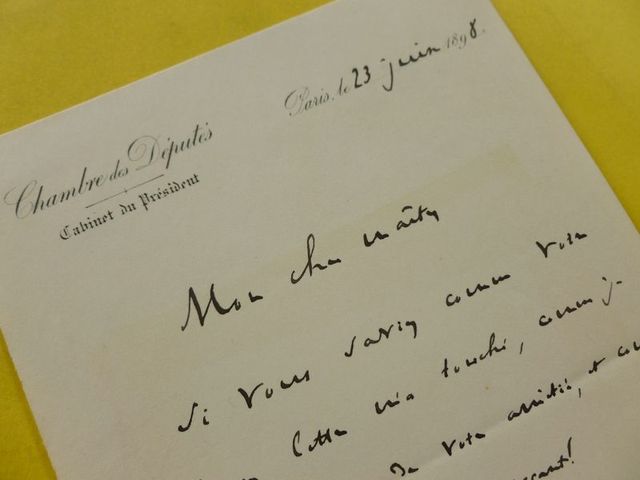 Paris, le 23 juin 1898.
Chambre des Députés
Cabinet du Président
Mon cher maître
si vous saviez comme votre
lettre m'a touché, comme je
de votre amitié, et